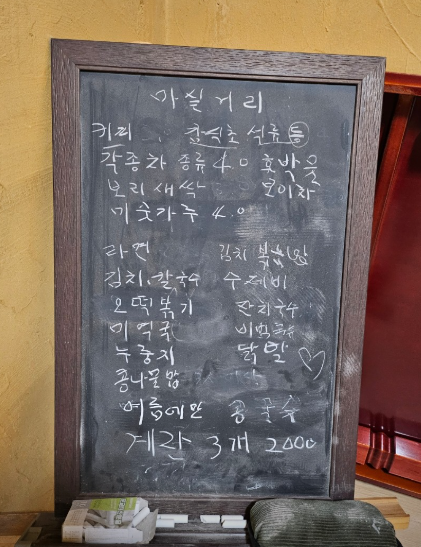 마실거리
커피 감식초 석류 등
각종차 종류 4.0 호박물
보리새싹 보이차
미숫가루 4.0
라면 김치 볶음밥
김치.칼국수 수제비
오떡볶기 잔치국수
미역국 비빔국수
누룽지 닭발
콩나물밥
여름에만 콩국수
계란 3개 2000